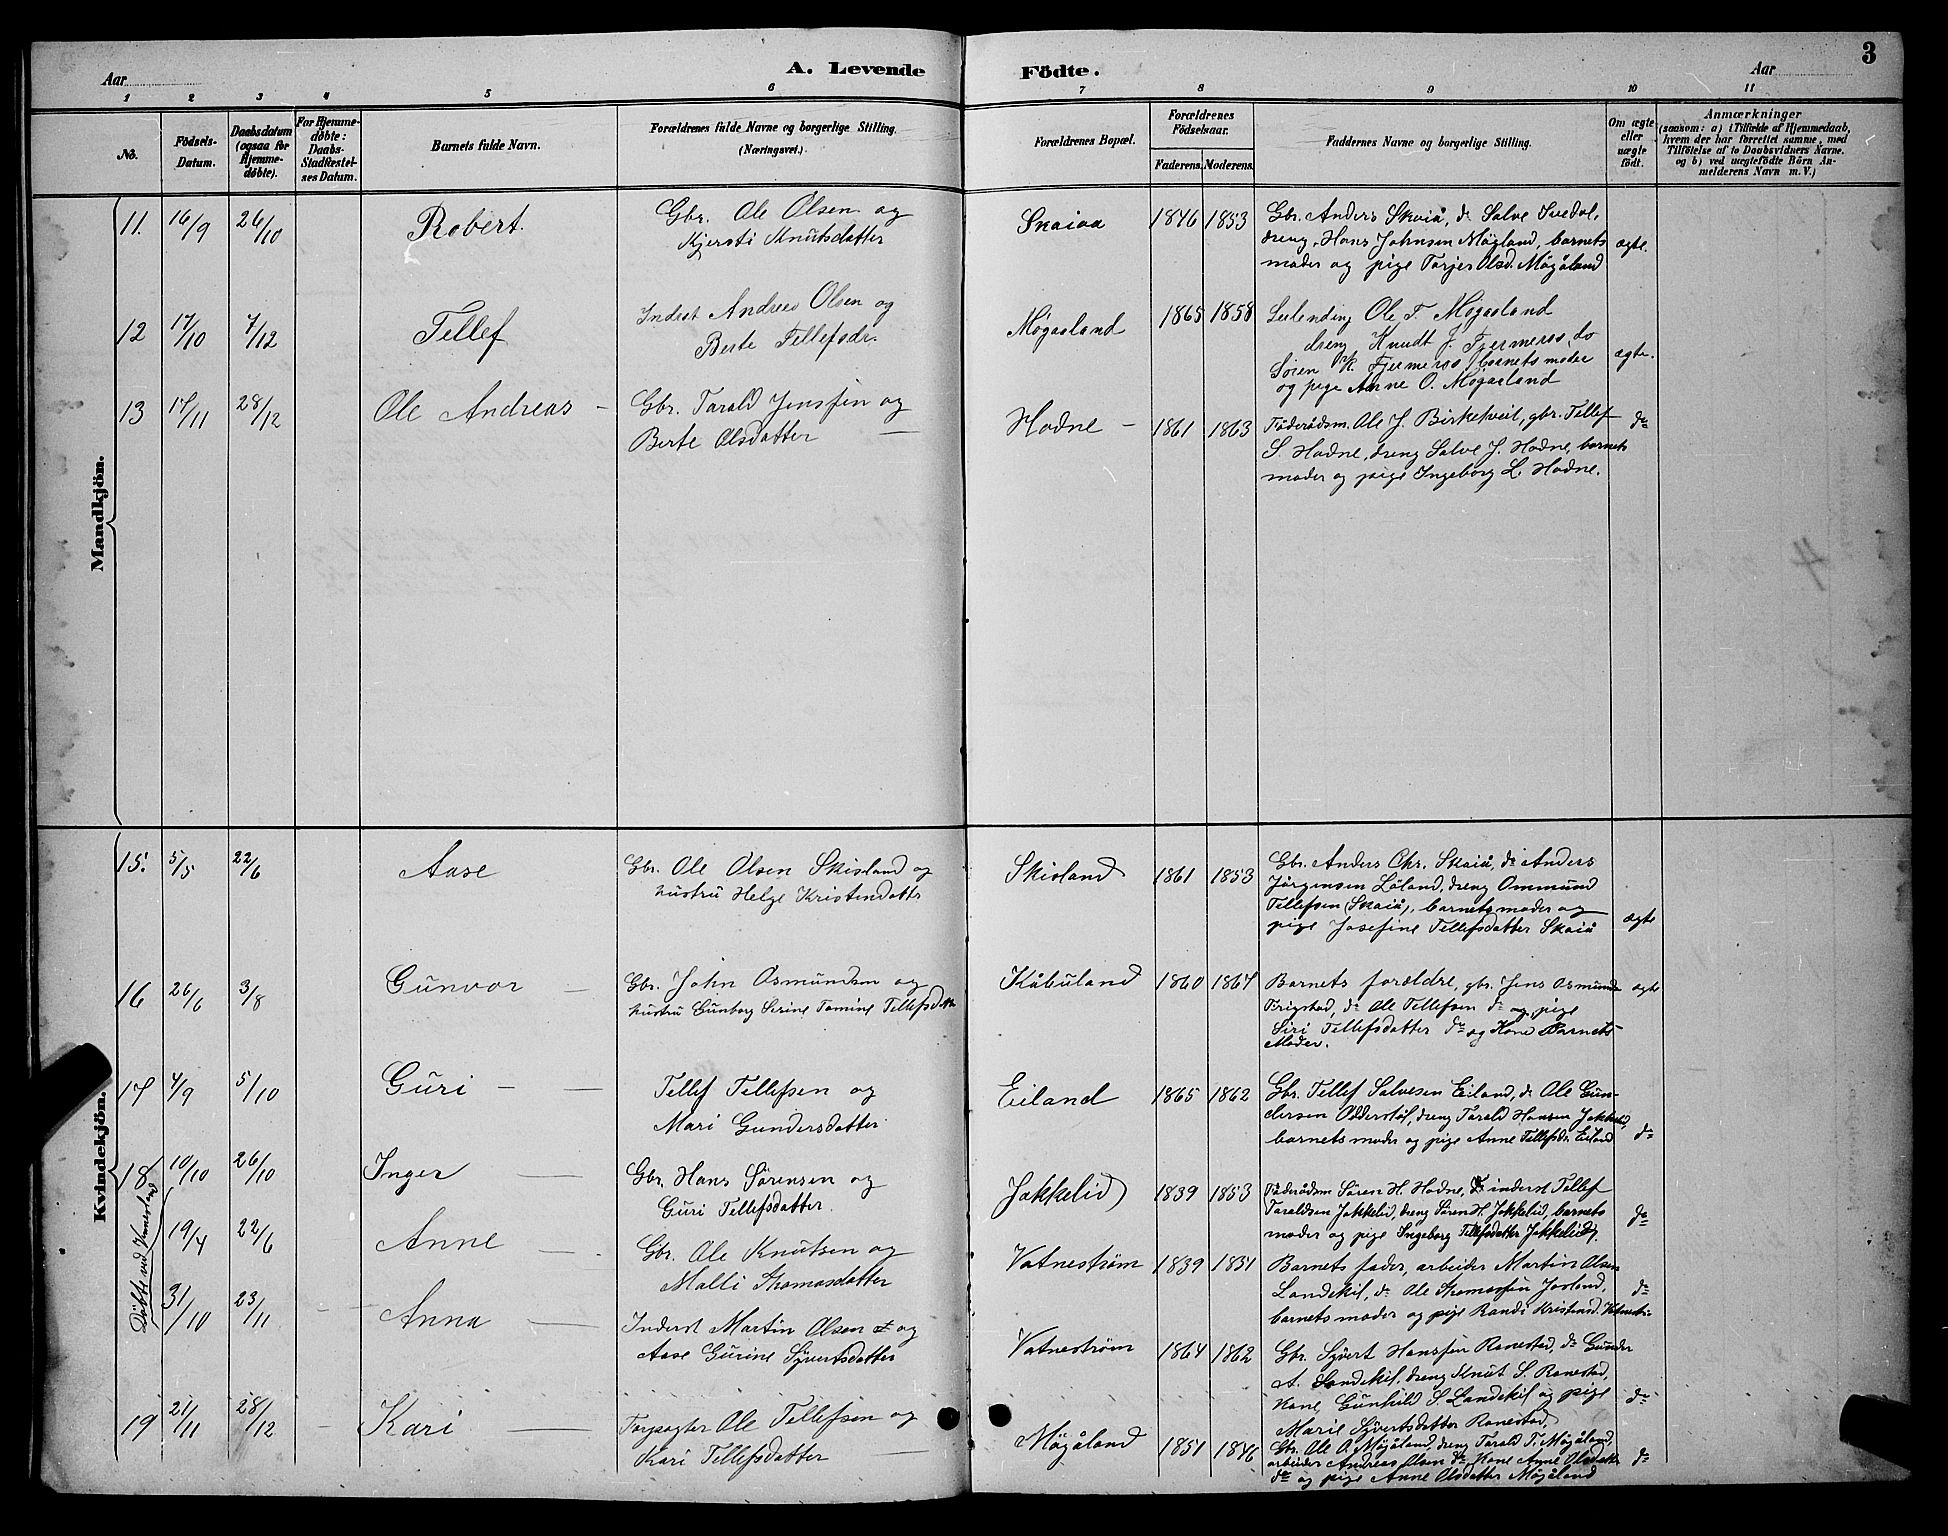 3
Aar
A. Levende Födte.
Aar
1 2 3 4 5 6 7 8 9 10 11
No.
Födsels-
Datum.
Daabsdatum
(ogsaa for
Hjemme-
døbte).
For Hjemme-
døbte:
Daabs-
Stadfæstel-
ses Datum.
Barnets fulde Navn.
Forældrenes fulde Navne og borgerlige Stilling.
(Næringsvei.)
Forældrenes Bopæl.
Forældrenes
Födselsaar.
Faderens. Moderens.
Faddernes Navne og borgerlige Stilling.
Om ægte
eller
uægte
födt.
Anmærkninger
(saasom: a) i Tilfælde af Hjemmedaab,
hvem der har forrettet samme, med
Tilföielse af to Daabsvidners Navne.
og b) ved uægtefödte Börn An-
melderens Navn m. V.)
Mandkjön.
11. 16/9 26/10 Robert. Gbr. Ole Olsen og
Kjersti Knutsdatter
Skaiaa 1846 1853
Gbr. Anders Skaiå, do Salve Svedal,
dreng Hans Johnsen Mögland, barnets
moder og pige Tarjer Olsd. Mögåland
ægte.
12 17/10 7/12 Tellef Inderst Andreas Olsen og
Berte Tellefsdr.
Møgaaland 1865 1858
Leilending Ole T. Møgaaland
dreng Knudt J. Fjermeros, do
Søren K. Fjermeros, barnets moder
og pige Anne O. Møgaaland
ægte.
13 17/11 28/12 Ole Andreas - Gbr. Tarald Jenssen og
Berte Olsdatter —
Hodne - 1861 1863
Föderådsm. Ole J. Birketveit, gbr. Tellef
S. Hodne, dreng Salve J. Hodne, barnets
moder og pige Ingeborg L. Hodne.
do
Kvindekjön.
15. 5/5 22/6 Aase Gbr. Ole Olsen Skisland og
hustru Helge Kristendatter
Skisland 1861 1853
Gbr. Anders Chr. Skaiå, do Anders
Jörgensen Löland, dreng Ommund
Tellefsen (Skaiå), barnets moder og
pige Josefine Tellefsdatter Skaiå
ægte
16 26/6 3/8 Gunvor - Gbr. John Osmundsen og
hustru Gunborg Serine Tomine Tellefsdatter
Kåbuland 1860 1864
Barnets forældre, gbr. Jens Osmunds
Brigstad, do Ole Tellefsen do og pige
Siri Tellefsdatter do og Kone Barnets
Moder.
ægte
17 4/9 5/10 Guri - — Tellef Tellefsen og
Mari Gundersdatter
Eiland 1865 1862
Gbr. Tellef Salvesen Eiland, do Ole Gun-
dersen Odderstöl, dreng Tarald Hansen Jakkelid,
barnets moder og pige Anne Tellefsdr. Eiland
do
18 10/10 26/10 Inger — Gbr. Hans Sörensen og
Guri Tellefsdatter.
Jakkelid 1839 1853
Föderådsm Sören H. Hodne, inderst Tellef
Taraldsen Jakkelid, dreng Sören H. Jakkelid, barnets
moder og pige Ingeborg Tellefsdatter Jakkelid.
do
Döbte ved
19/4 22/6 Anne — Gbr. Ole Knutsen og
Malli Thomasdatter
Vatnestrøm 1839 1851
Barnets fader, arbeider Martin Olsen
Landekil, do Ole Thomassen Josland,
barnets moder og pige Randi Kristensd. Vatnestr.
do
31/10 23/11 Anna — Inderst Martin Olsen og
Aase Gurine Syvertsdatter
Vatnestrøm 1864 1862
Gbr. Syvert Hanssen Ranestad, do Gunder
A. Landekil, dreng Knut S. Ranestad,
Kone Gunhild S. Landekil og pige
Marie Syvertsdatter Ranestad,
do
19 21/11 28/12 Kari — Forpagter Ole Tellefsen og
Kari Tellefsdatter —
Mögåland 1851 1846
Gbr. Ole O. Mögåland, dreng Tarald T. Mögåland,
arbeider Andreas Olsen do, Kone Anne Olsdatter
do og pige Anne Olsdatter Mögåland
do